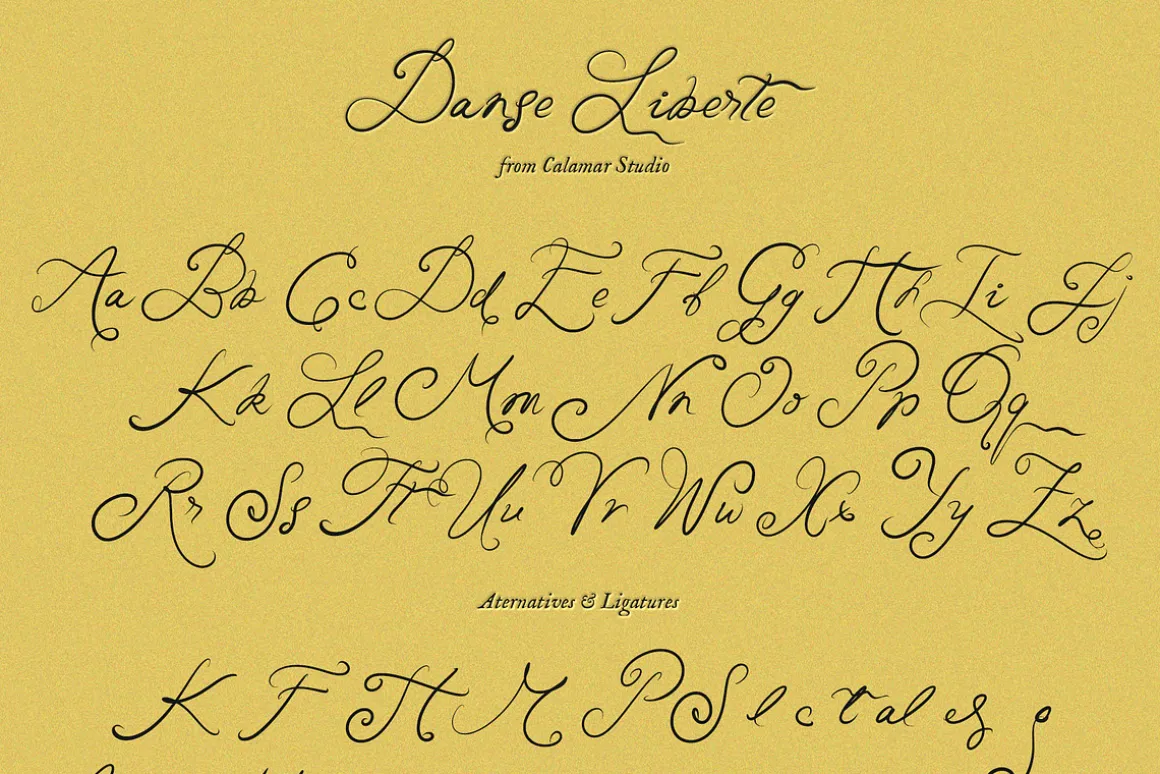 Danse Liberte
from Calamar Studio
Aa Bb Cc Dd Ee Ff Gg Hh Ii Jj
Kk Ll Mm Nn Oo Pp Qq
Rr Ss Tt Uu Vv Ww Xx Yy Zz
Aternatives & Ligatures
K F H M P S l c t al es